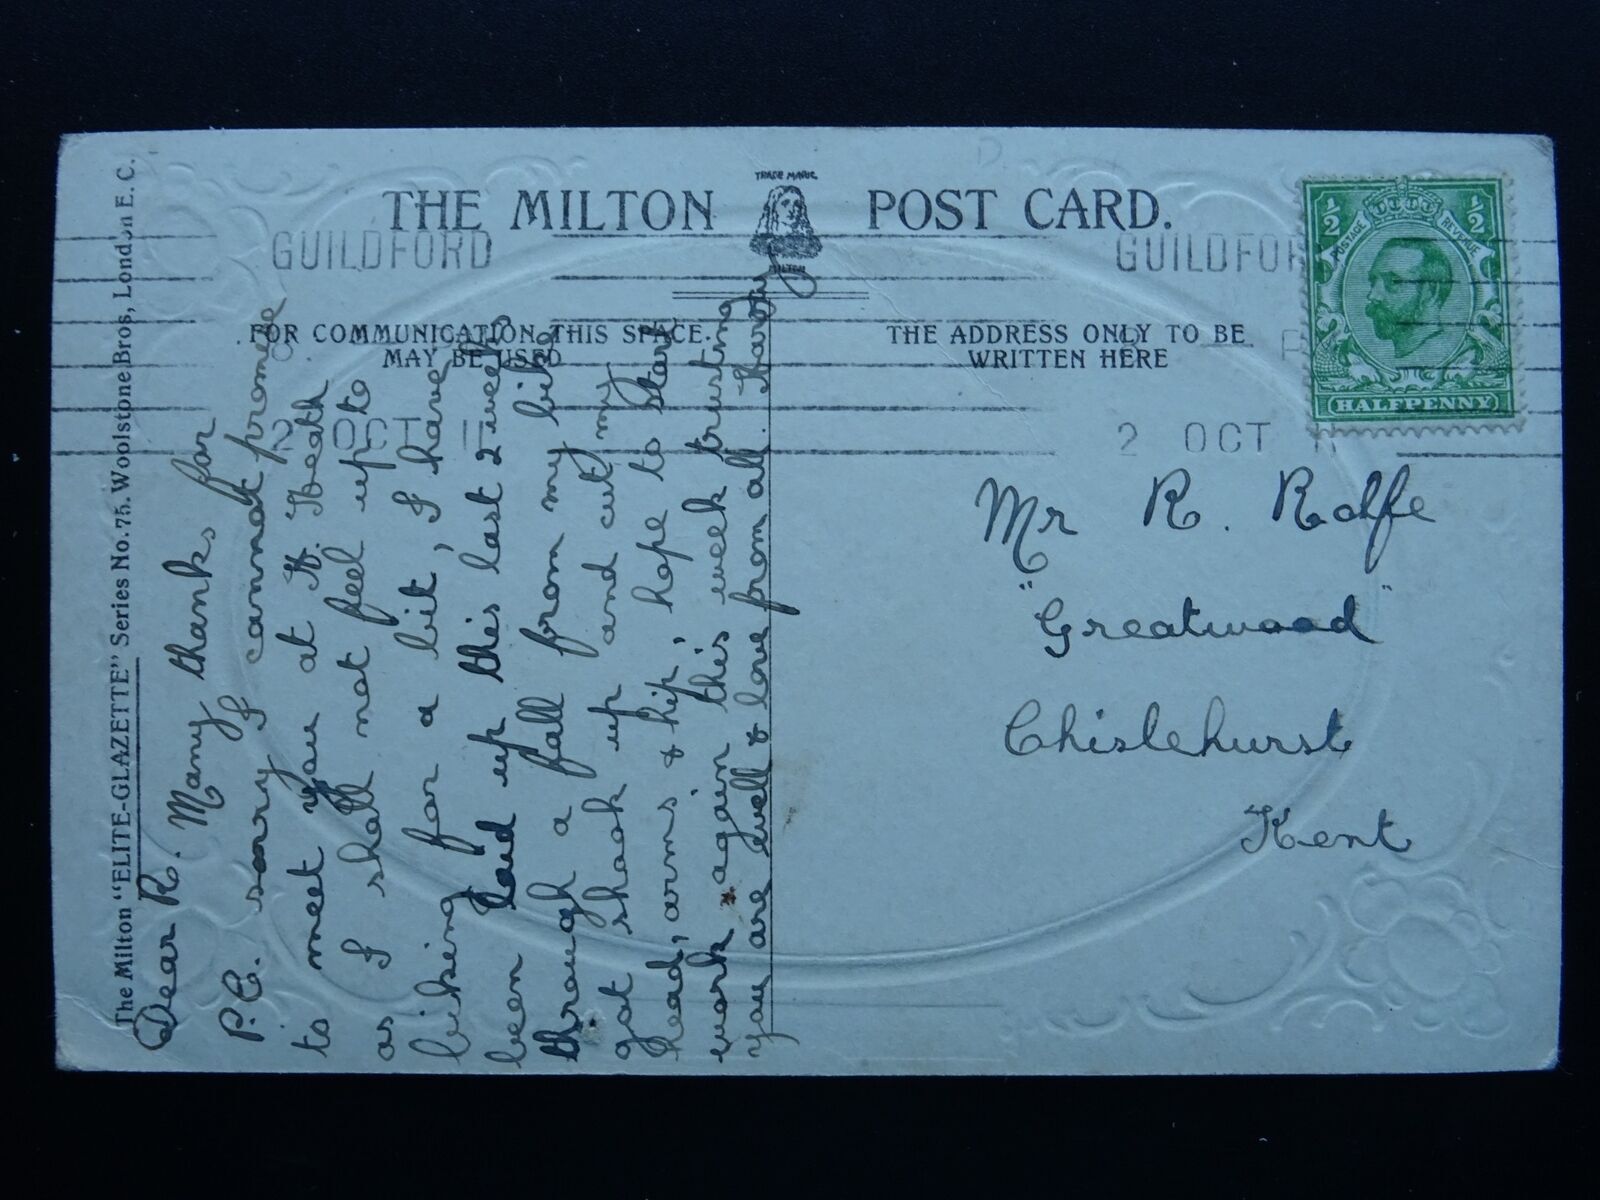 The Milton "ELITE-GLAZETTE" Series No. 75. Woolstone Bros, London E. C.
THE MILTON POST CARD.
TRADE MARK
MILTON
GUILDFORD
2 OCT 11
GUILDFOR
2 OCT 11
FOR COMMUNICATION THIS SPACE
MAY BE USED
THE ADDRESS ONLY TO BE
WRITTEN HERE
POSTAGE REVENUE
1/2 1/2
HALFPENNY
Dear R. Many thanks for
P.C. sorry I cannot promise
to meet you at H. Heath
as I shall not feel up to
biking for a bit, I have
been laid up this last 2 weeks
through a fall from my bike
got shook up and cut my
head, arms & hip, hope to start
work again this week trusting
you are well & love from all. Harry
Mr R. Rolfe
"Greatwood"
Chislehurst
Kent